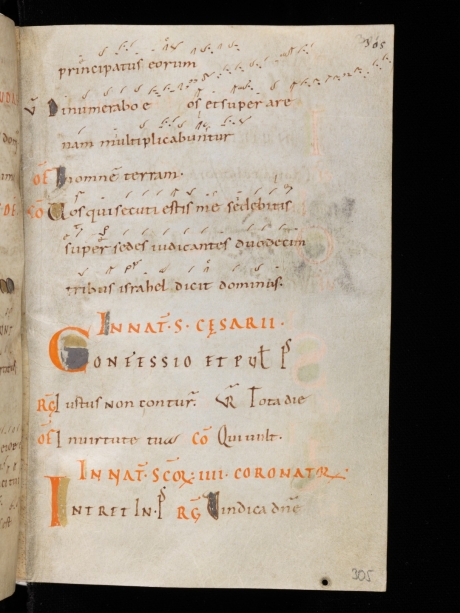 305
principatus eorum
Dinumerabo e os et super are
nam multiplicabuntur
OF In omnem terram.
CO Uos qui secuti estis me sedebitis
super sedes iudicantes duodecim
tribus israhel dicit dominus.
IN NAT̄. S. CĘSARII.
CONFESSIO ET PUL P̄S
RG Iustus non contur̄. VR Tota die
OF In uirtute tua CO Qui uult.
IN NAT̄. SCOR. IIII. CORONATOR.
INTRET IN. P̄S RG Uindica dn̄e
305